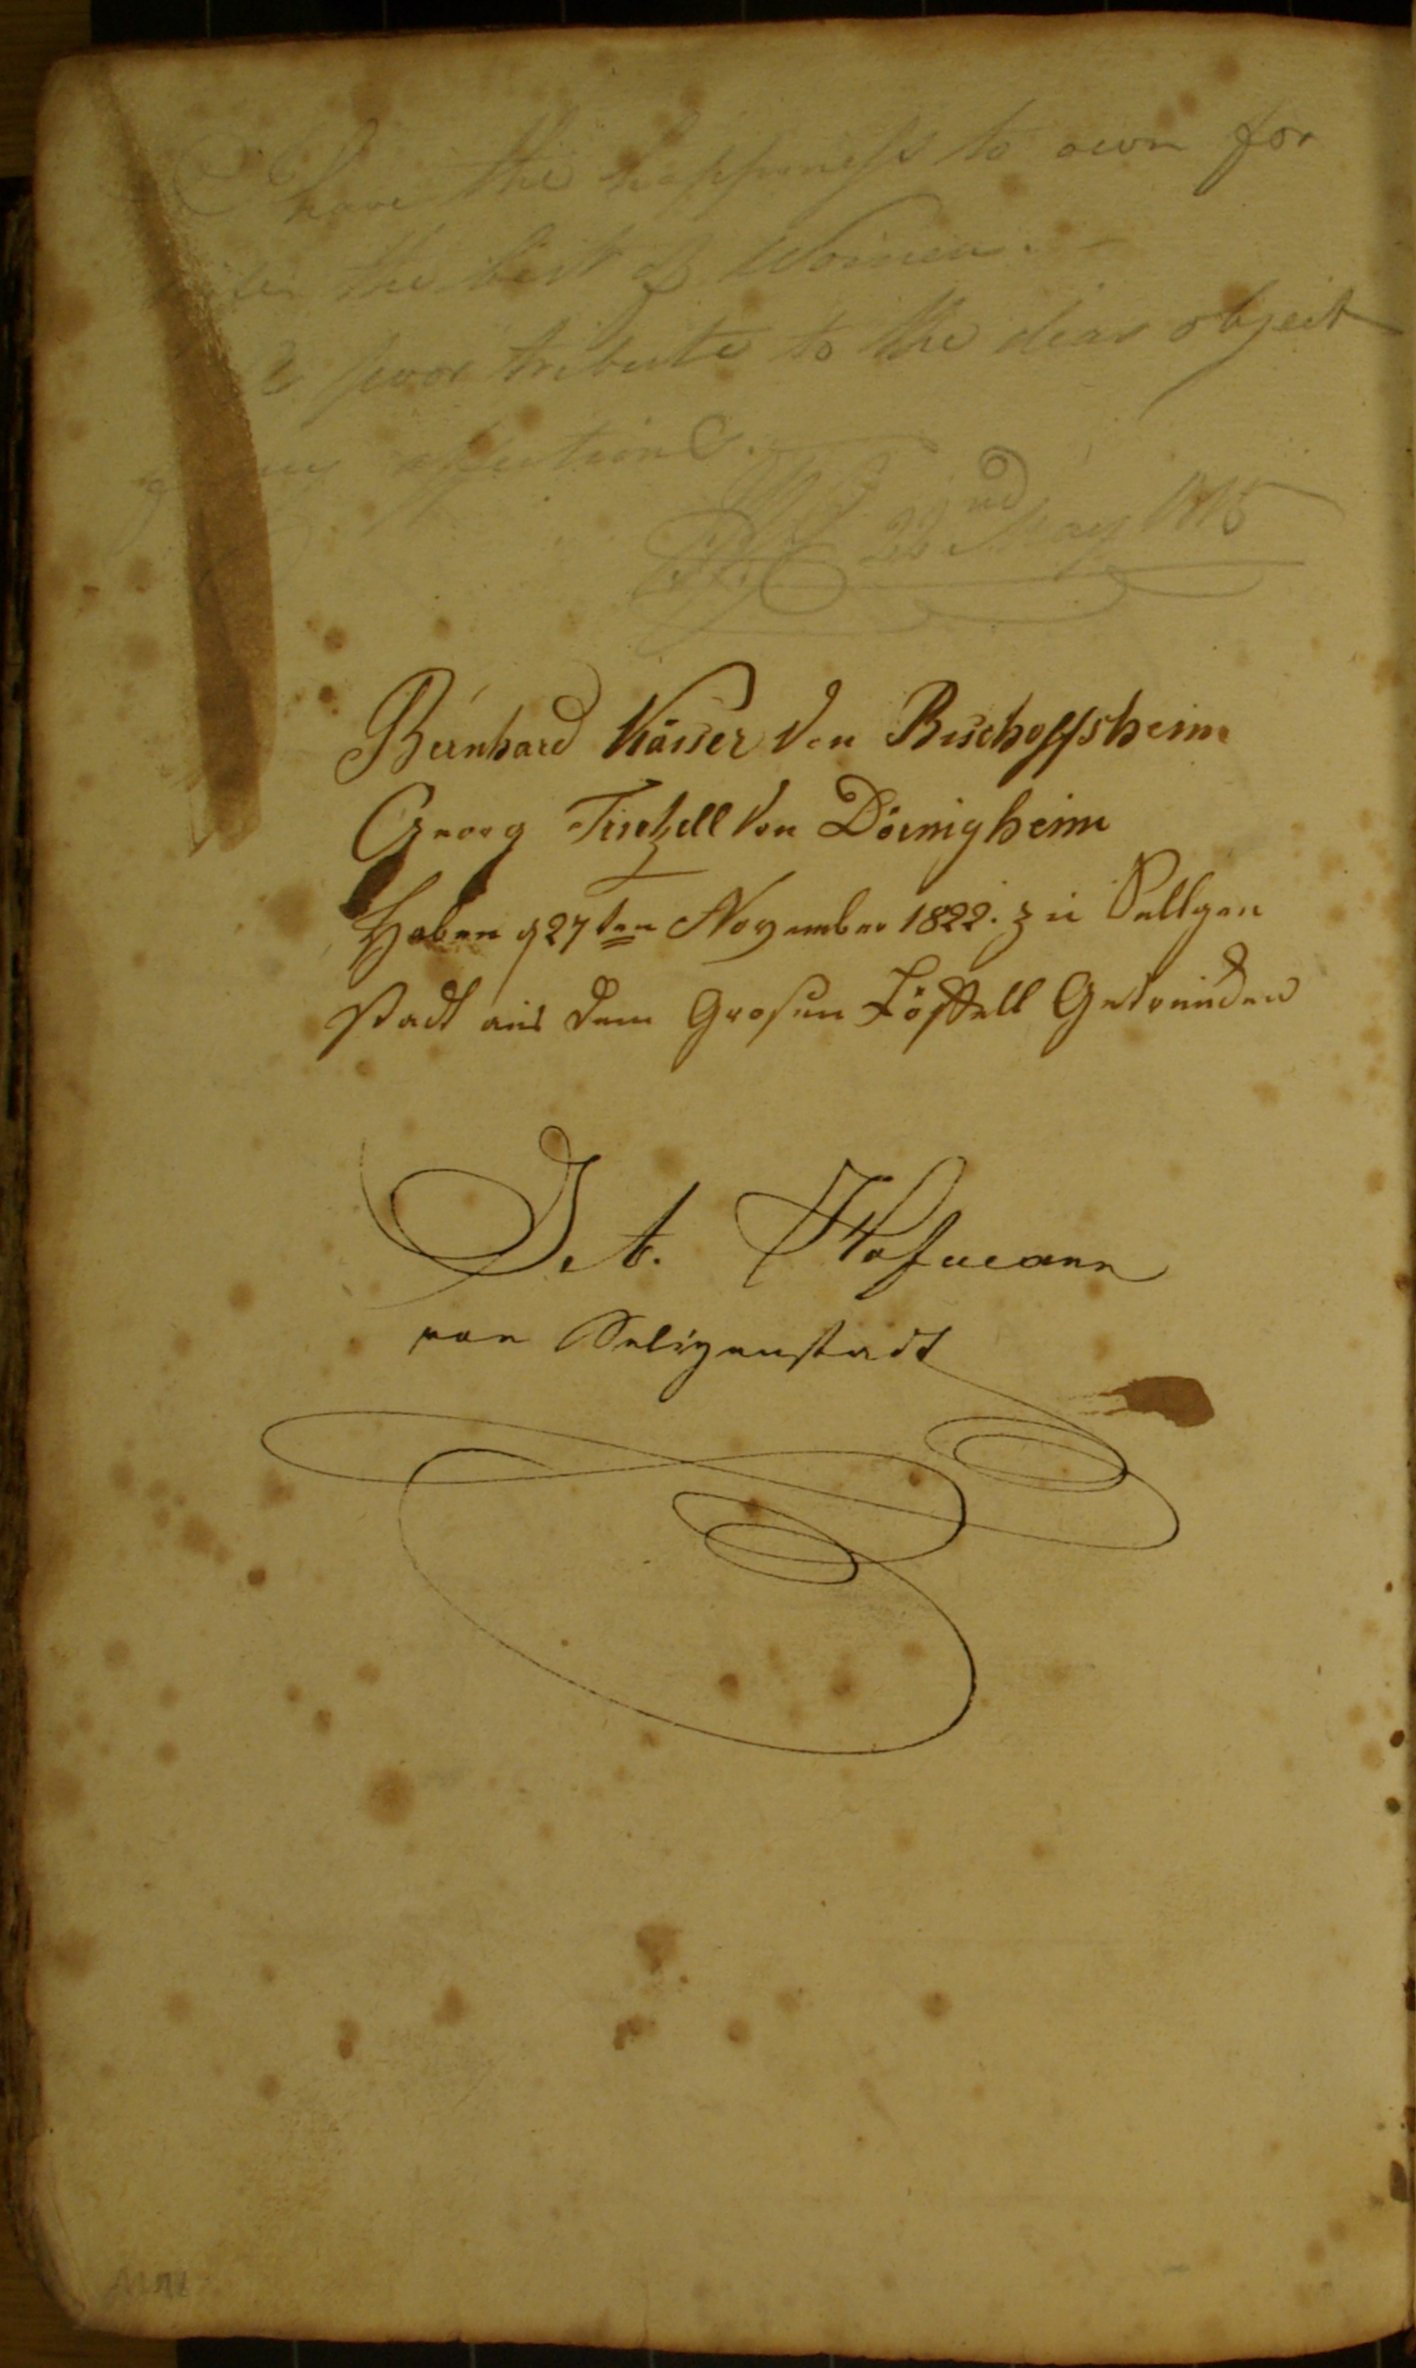 I have the happiness to own for
wife the best of Women.
A poor tribute to the dear object
of my affections.
22nd May 1815
Bernhard Kaiser Von Bischoffsheim
Georg Tretzell Von Dörnigheim
Haben d 27ten November 1822. zu Sellgen
stadt aus dem Grosen Löffell Getrunden
J. A. Hofmann
von Seligenstadt